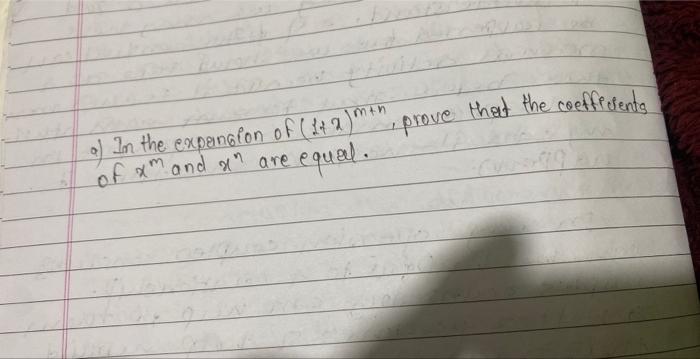 a) In the expansion of (1+x)^m+n, prove that the coefficients
of x^m and x^n are equal.